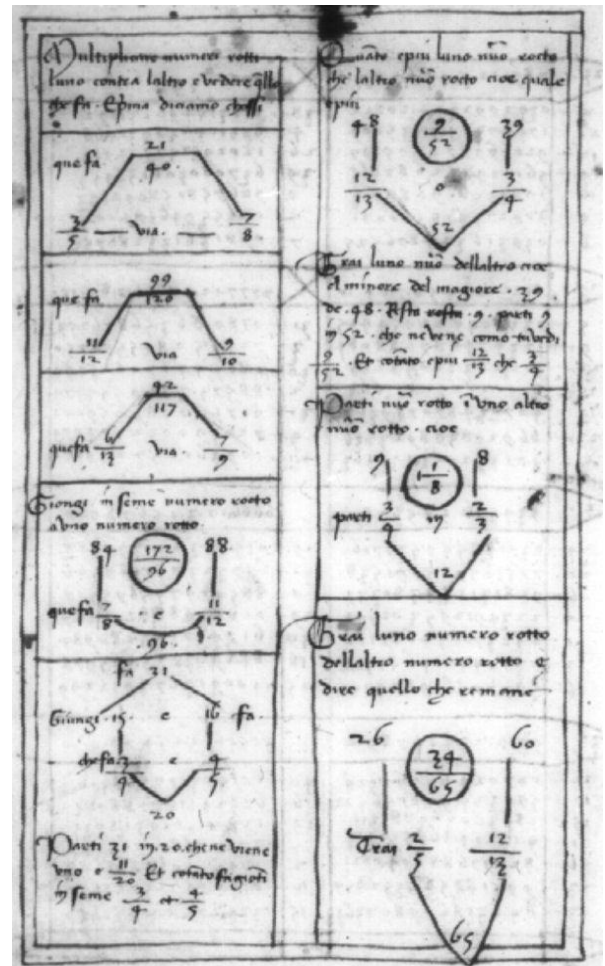 Multiplicare numeri rotti
luno contra laltro e vedere q̃llo
che fa. Eprima diciamo chessi
21
que fa 40
3/5 via 7/8
99
que fa 120
11/12 via 9/10
42
117
que fa 6/13 via 7/9
Giongi inseme numero rocto
a uno numero rotto
84 172/96 88
que fa 7/8 e 11/12
.96.
fa 31
Giungi .15 e 16 fa
che fa 3/4 e 4/5
20
Parti 31 in 20. che ne viene
uno e 11/20 Et cotãto
inseme 3/4 et 4/5
Quãto epiu luno nũo rocto
che laltro nũo rocto cioe quale
epiu
48 9/52 39
12/13 o 3/4
52
Trai luno nũo dellaltro cioe
el minore del magiore . 39
de .48. Resta 9. parti 9
in 52. che ne vene como tu vedi
9/52 . Et cotãto epiu 12/13 che 3/4
Parti nũo rotto ĩ uno altro
nũo rotto . cioe
9 1 1/8 8
parti 3/4 in 2/3
12
Trai luno numero rotto
dellaltro numero rotto e
dire quello che remane
26 34/65 60
Trai 2/5 12/13
65